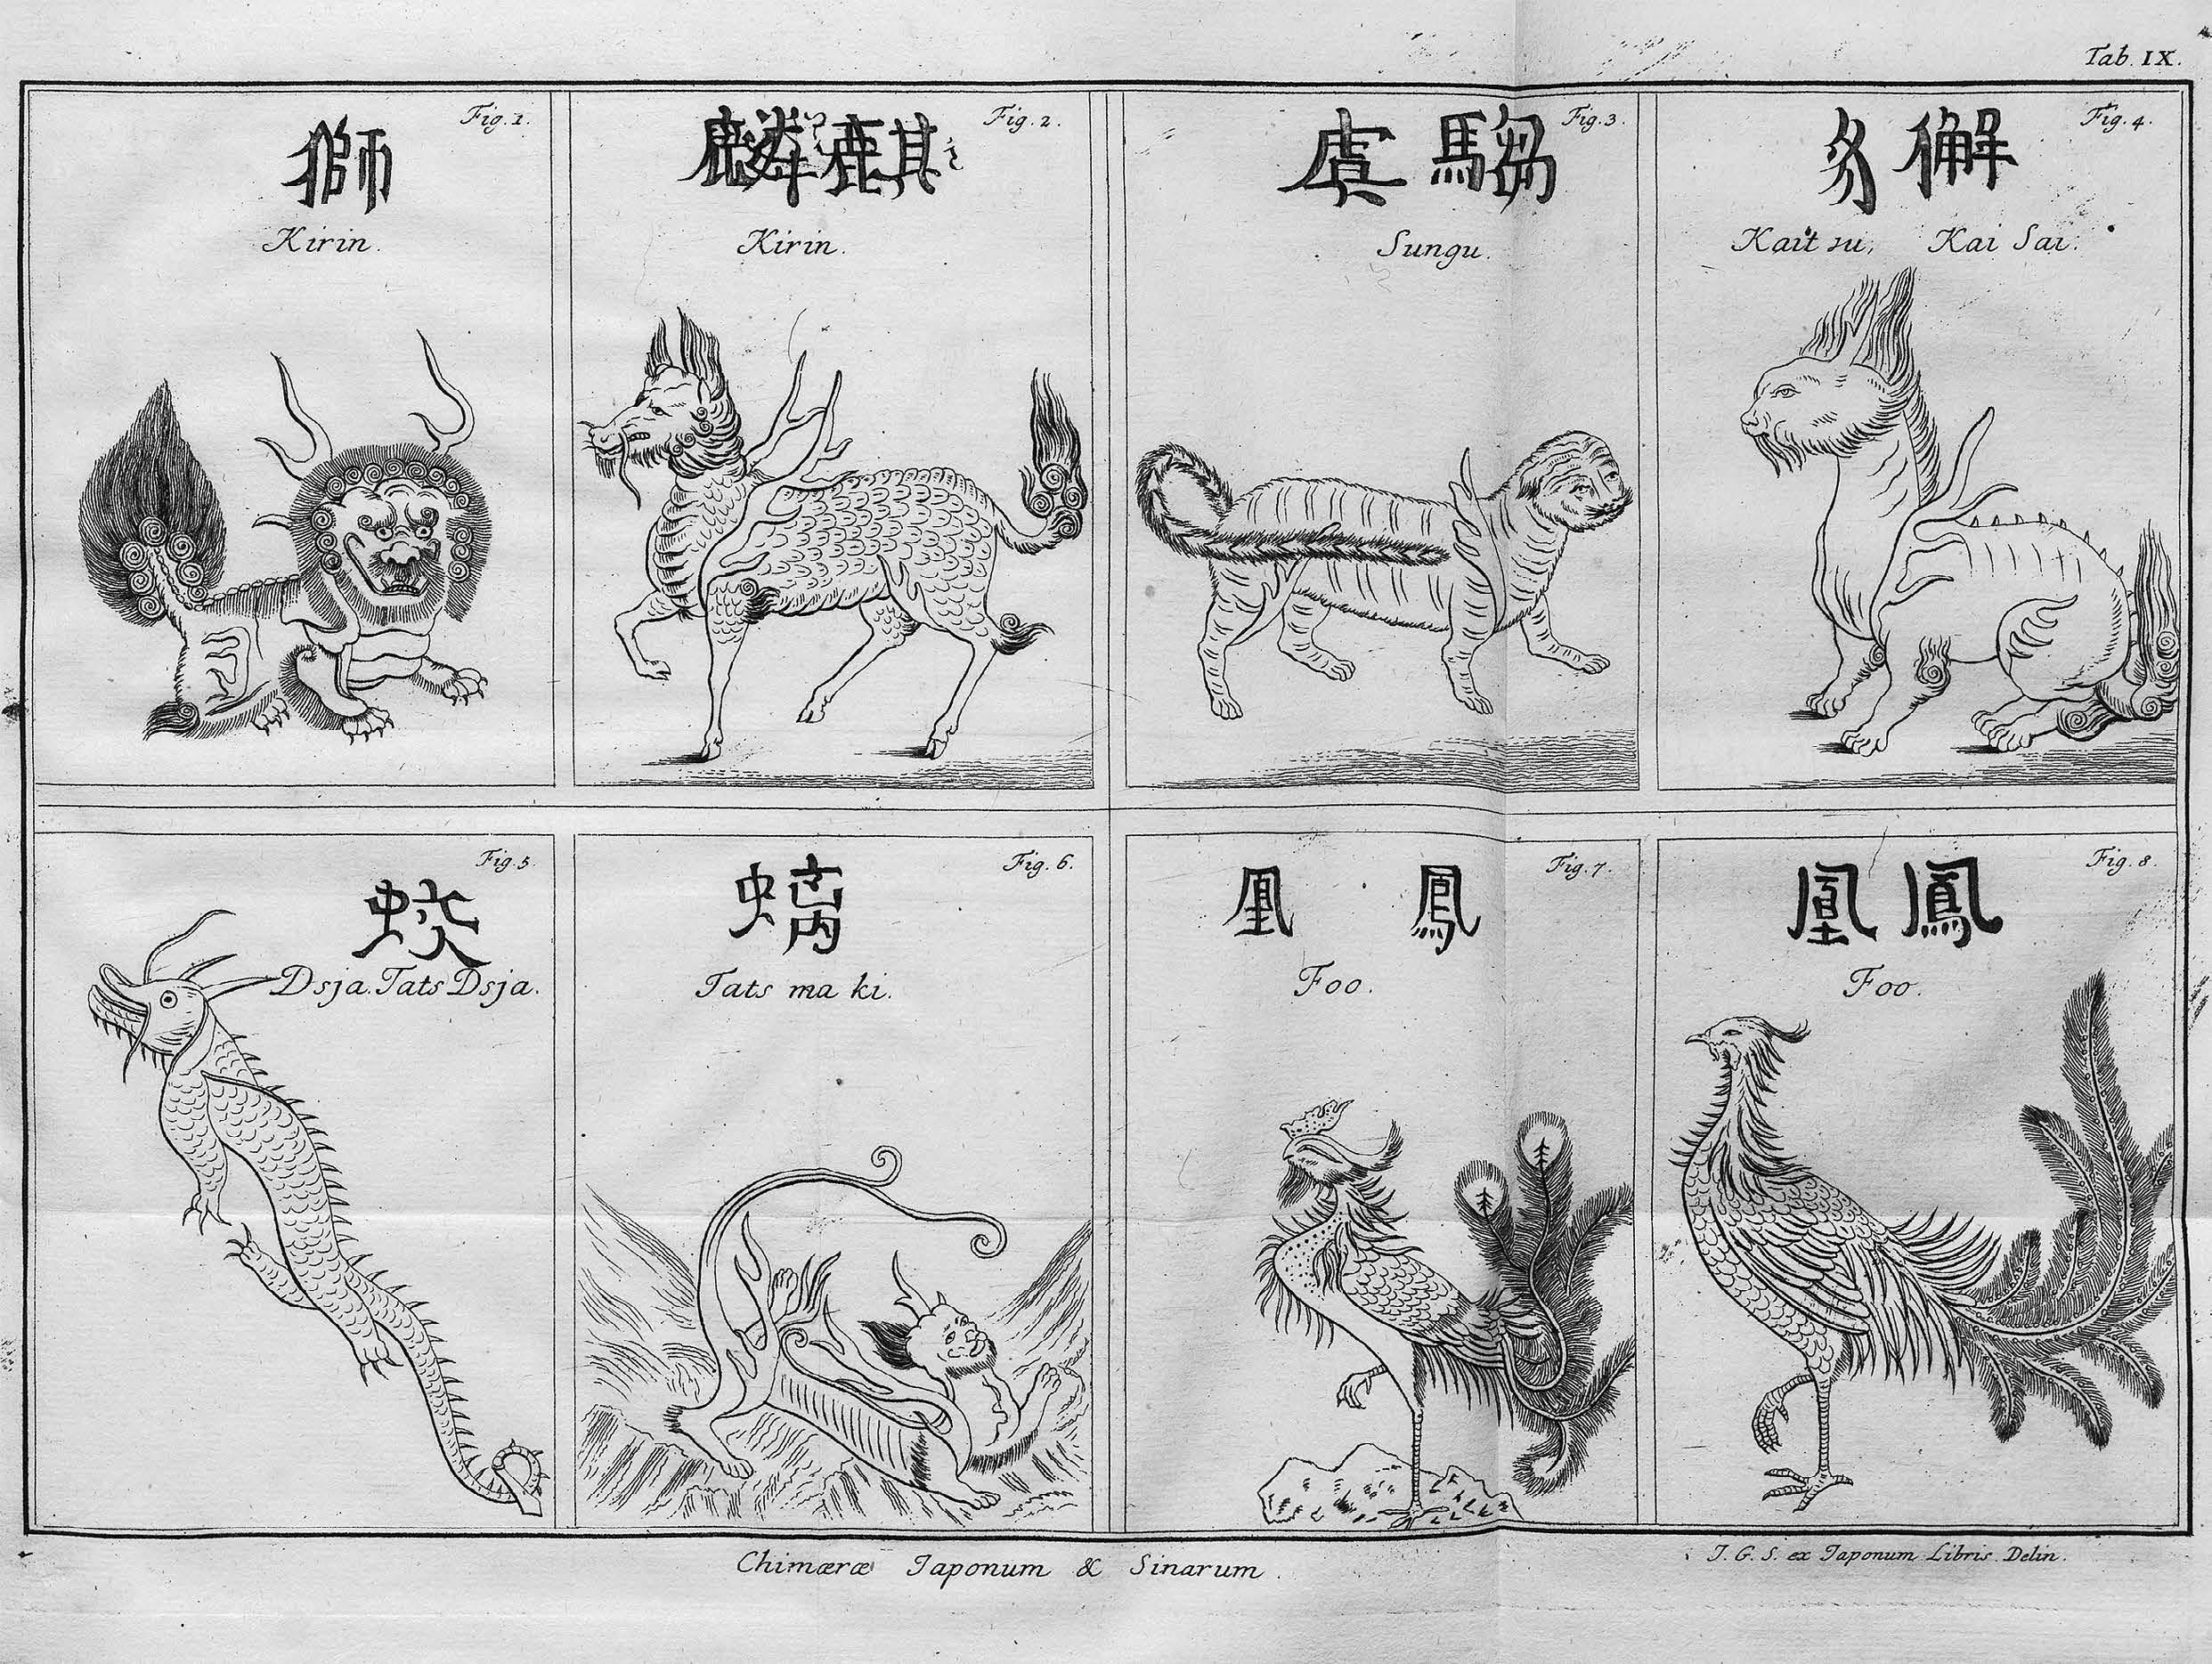 Tab. IX.
Fig. 1.
獅
Kirin.
Fig. 2.
麟麒
Kirin.
Fig. 3.
虞 騶
Sungu.
Fig. 4.
豸 獬
Kaitsu, Kai Sai.
Fig. 5.
蛟
Dsja. Tats Dsja.
Fig. 6.
螭
Tats ma ki.
Fig. 7.
凰 鳳
Foo.
Fig. 8.
凰 鳳
Foo.
Chimæræ Japonum & Sinarum.
J. G. S. ex Japonum Libris Delin.